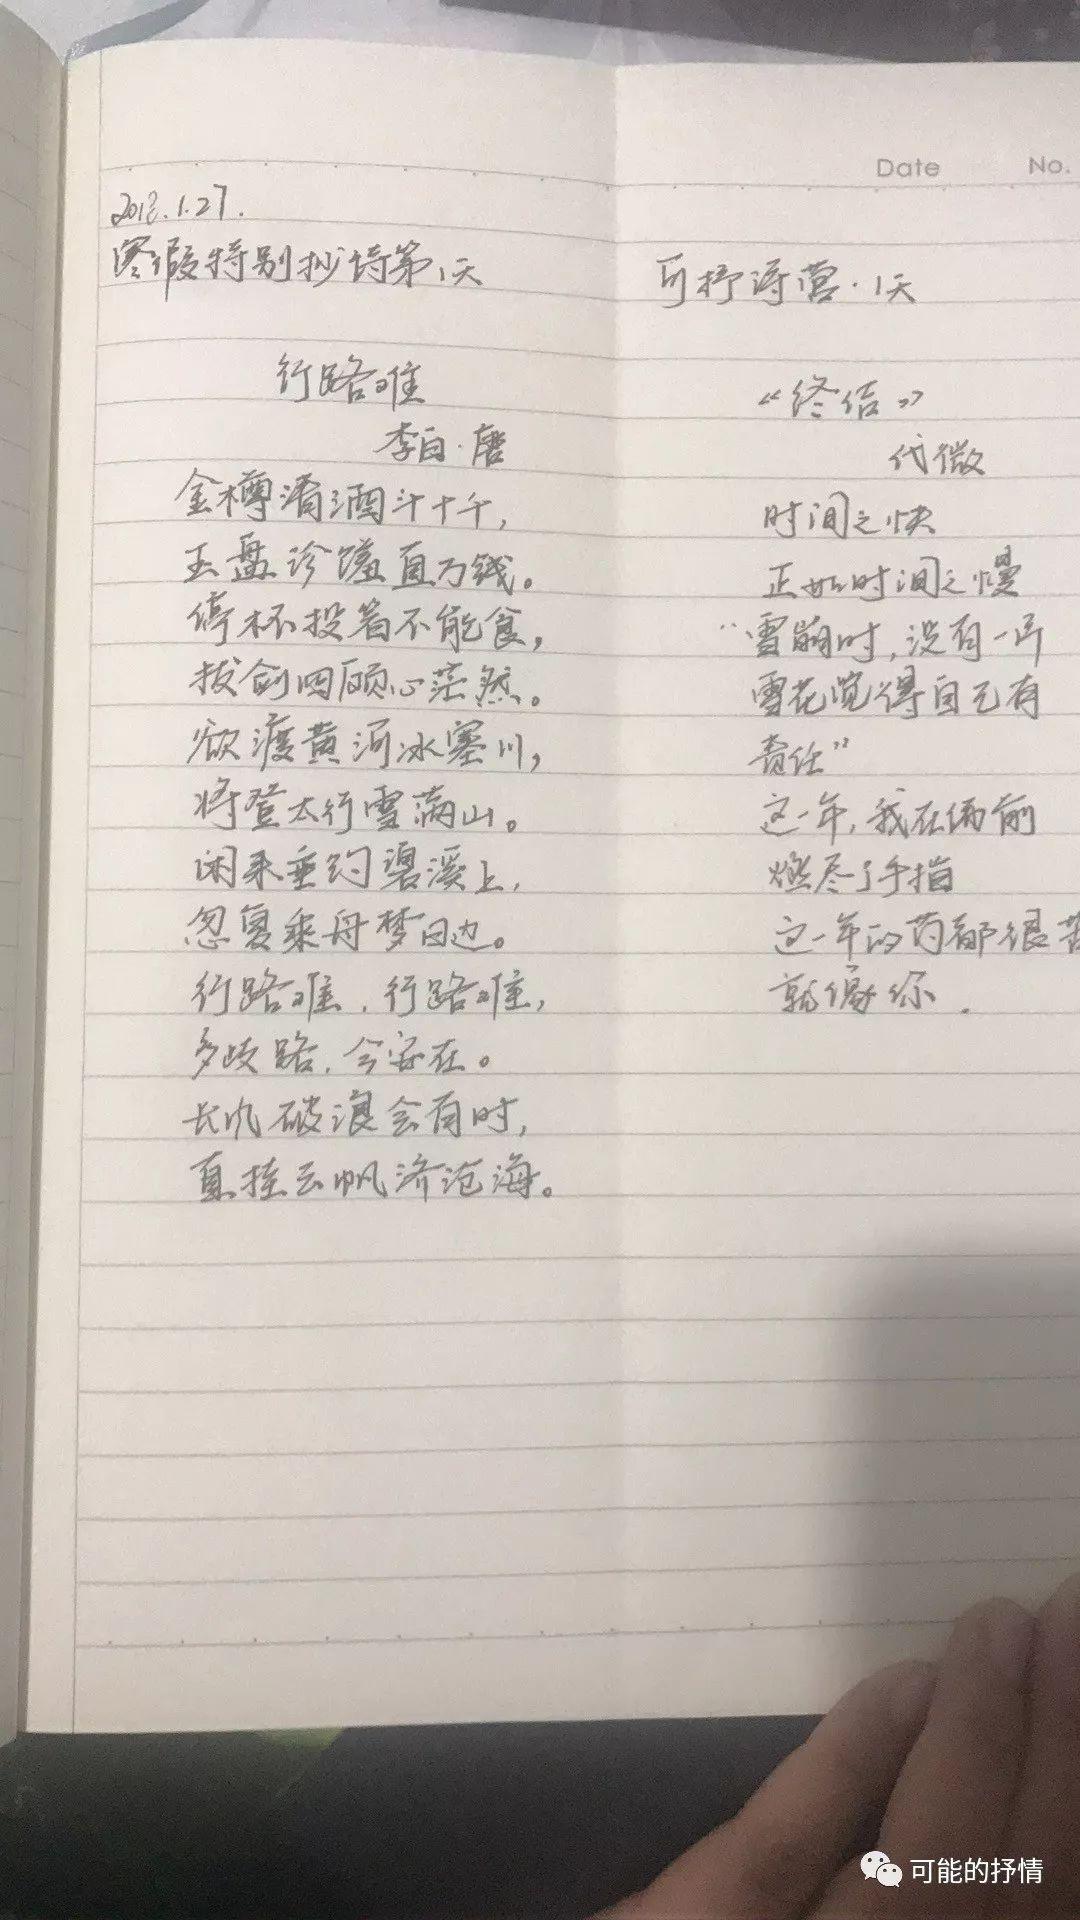 2018.1.27.
寒假特别抄诗第1天
行路难
李白·唐
金樽清酒斗十千，
玉盘珍馐直万钱。
停杯投箸不能食，
拔剑四顾心茫然。
欲渡黄河冰塞川，
将登太行雪满山。
闲来垂钓碧溪上，
忽复乘舟梦日边。
行路难，行路难，
多歧路，今安在。
长风破浪会有时，
直挂云帆济沧海。
Date No.
可抒诗营·1天
“终结”
代薇
时间之快
正如时间之慢
“雪崩时，没有一片
雪花觉得自己有
责任”
这一年，我在佛前
燃尽了手指
这一年的药都很苦
就像你.
可能的抒情